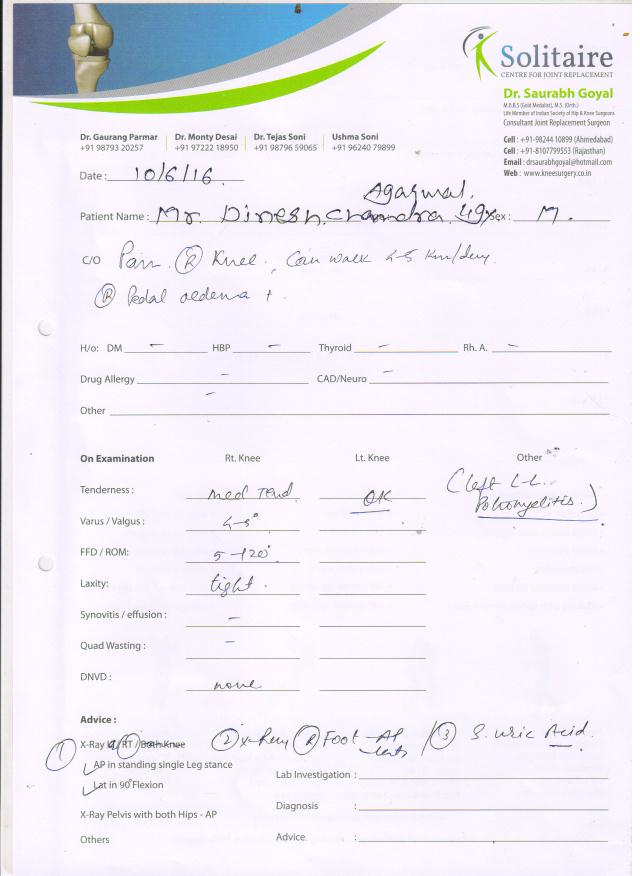 Solitaire
CENTRE FOR JOINT REPLACEMENT
Dr. Saurabh Goyal
M.B.B.S (Gold Medalist), M.S. (Orth.)
Life Member of Indian Society of Hip & Knee Surgeons
Consultant Joint Replacement Surgeon
Cell : +91-98244 10899 (Ahmedabad)
Cell : +91-8107799553 (Rajasthan)
Email : drsaurabhgoyal@hotmail.com
Web : www.kneesurgery.co.in
Dr. Gaurang Parmar Dr. Monty Desai Dr. Tejas Soni Ushma Soni
+91 98793 20257 +91 97222 18950 +91 98796 59065 +91 96240 79899
Date : 10/6/16
Agarwal.
Patient Name : Mr. Dinesh chandra 49y Sex : M.
C/O Pain (R) Knee. Can walk 4-5 Km/day.
(R) Pedal oedema +.
H/o: DM - HBP - Thyroid - Rh. A. -
Drug Allergy - CAD/Neuro -
Other -
On Examination Rt. Knee Lt. Knee Other
Tenderness : med Tend. OK (Left L.L. Poliomyelitis.)
Varus / Valgus : 4-5°
FFD / ROM: 5-120°
Laxity: tight.
Synovitis / effusion : -
Quad Wasting : -
DNVD : none
Advice :
(1) X-Ray Lt/RT / Both Knee (2) X-Ray (R) Foot - AP / (3) S. Uric Acid.
AP in standing single Leg stance
Lat in 90° Flexion
Lab Investigation :
X-Ray Pelvis with both Hips - AP
Diagnosis :
Others
Advice :